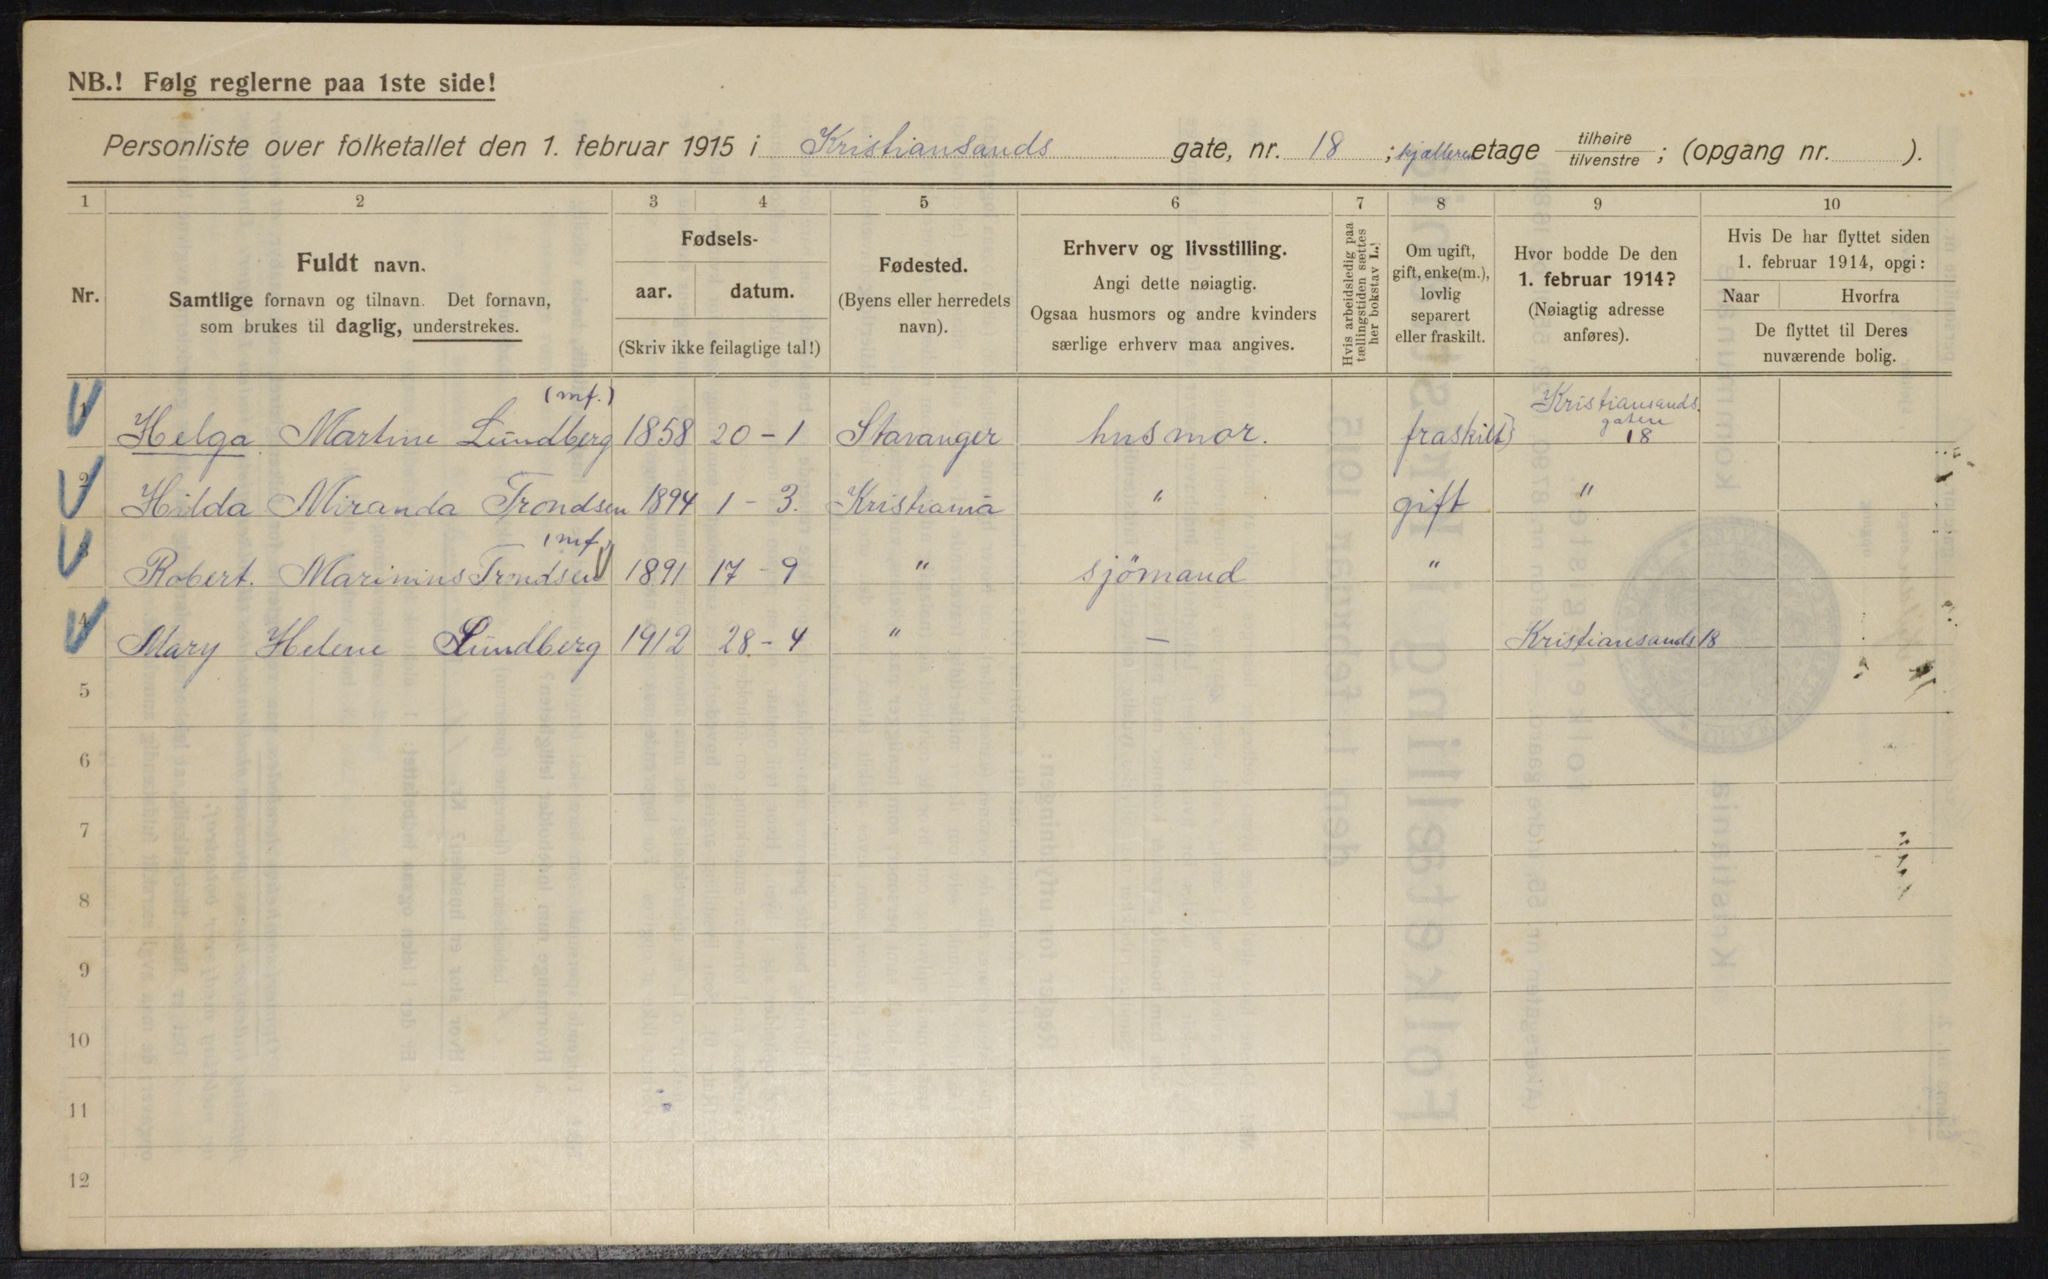 NB.! Følg reglerne paa 1ste side!
Personliste over folketallet den 1. februar 1915 i Kristiansands gate, nr. 18 ; kjælleren etage tilhøire / tilvenstre ; (opgang nr. ).
1 2 3 4 5 6 7 8 9 10
Nr.
Fuldt navn.
Samtlige fornavn og tilnavn. Det fornavn,
som brukes til daglig, understrekes.
Fødsels-
aar. datum.
(Skriv ikke feilagtige tal!)
Fødested.
(Byens eller herredets
navn).
Erhverv og livsstilling.
Angi dette nøiagtig.
Ogsaa husmors og andre kvinders
særlige erhverv maa angives.
Hvis arbeidsledig paa
tællingstiden sættes
her bokstav L.!
Om ugift,
gift, enke(m.),
lovlig
separert
eller fraskilt.
Hvor bodde De den
1. februar 1914?
(Nøiagtig adresse
anføres).
Hvis De har flyttet siden
1. februar 1914, opgi:
Naar Hvorfra
De flyttet til Deres
nuværende bolig.
(mf.)
1 Helga Martine Lundberg 1858 20-1 Stavanger husmor. fraskilt Kristiansands gaten 18
2 Hilda Miranda Trondsen 1894 1-3. Kristiania " gift "
(mf.
3 Robert. Marinius Trondsen 1891 17-9 " sjömand "
4 Mary Helene Lundberg 1912 28-4 " — Kristiansands 18
5
6
7
8
9
10
11
12